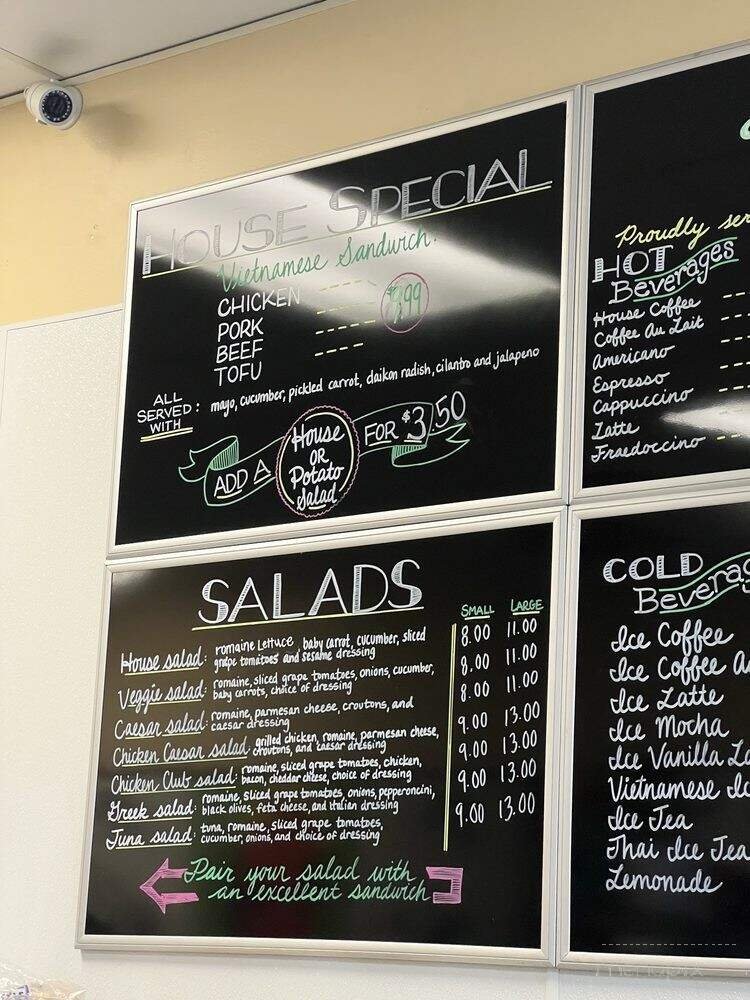 HOUSE SPECIAL
Vietnamese Sandwich.
CHICKEN
PORK
BEEF
TOFU
ALL SERVED WITH: mayo, cucumber, pickled carrot, daikon radish, cilantro and jalapeno
ADD A House OR Potato Salad FOR $3.50
SALADS
SMALL LARGE
House salad: romaine lettuce, baby carrot, cucumber, sliced 8.00 11.00
grape tomatoes and sesame dressing
Veggie salad: romaine, sliced grape tomatoes, onions, cucumber, 8.00 11.00
baby carrots, choice of dressing
Caesar salad: romaine, parmesan cheese, croutons, and 8.00 11.00
caesar dressing
Chicken Caesar salad: grilled chicken, romaine, parmesan cheese, 9.00 13.00
croutons, and caesar dressing
Chicken Club salad: romaine, sliced grape tomatoes, chicken, 9.00 13.00
bacon, cheddar cheese, choice of dressing
Greek salad: romaine, sliced grape tomatoes, onions, pepperoncini, 9.00 13.00
black olives, feta cheese, and Italian dressing
Tuna salad: tuna, romaine, sliced grape tomatoes, 9.00 13.00
cucumber, onions, and choice of dressing
Pair your salad with
an excellent sandwich
Proudly ser
HOT
Beverages
House Coffee
Coffee Au Lait
Americano
Espresso
Cappuccino
Latte
Fraedoccino
COLD
Beverag
Ice Coffee
Ice Coffee A
Ice Latte
Ice Mocha
Ice Vanilla La
Vietnamese Ic
Ice Tea
Thai Ice Tea
Lemonade